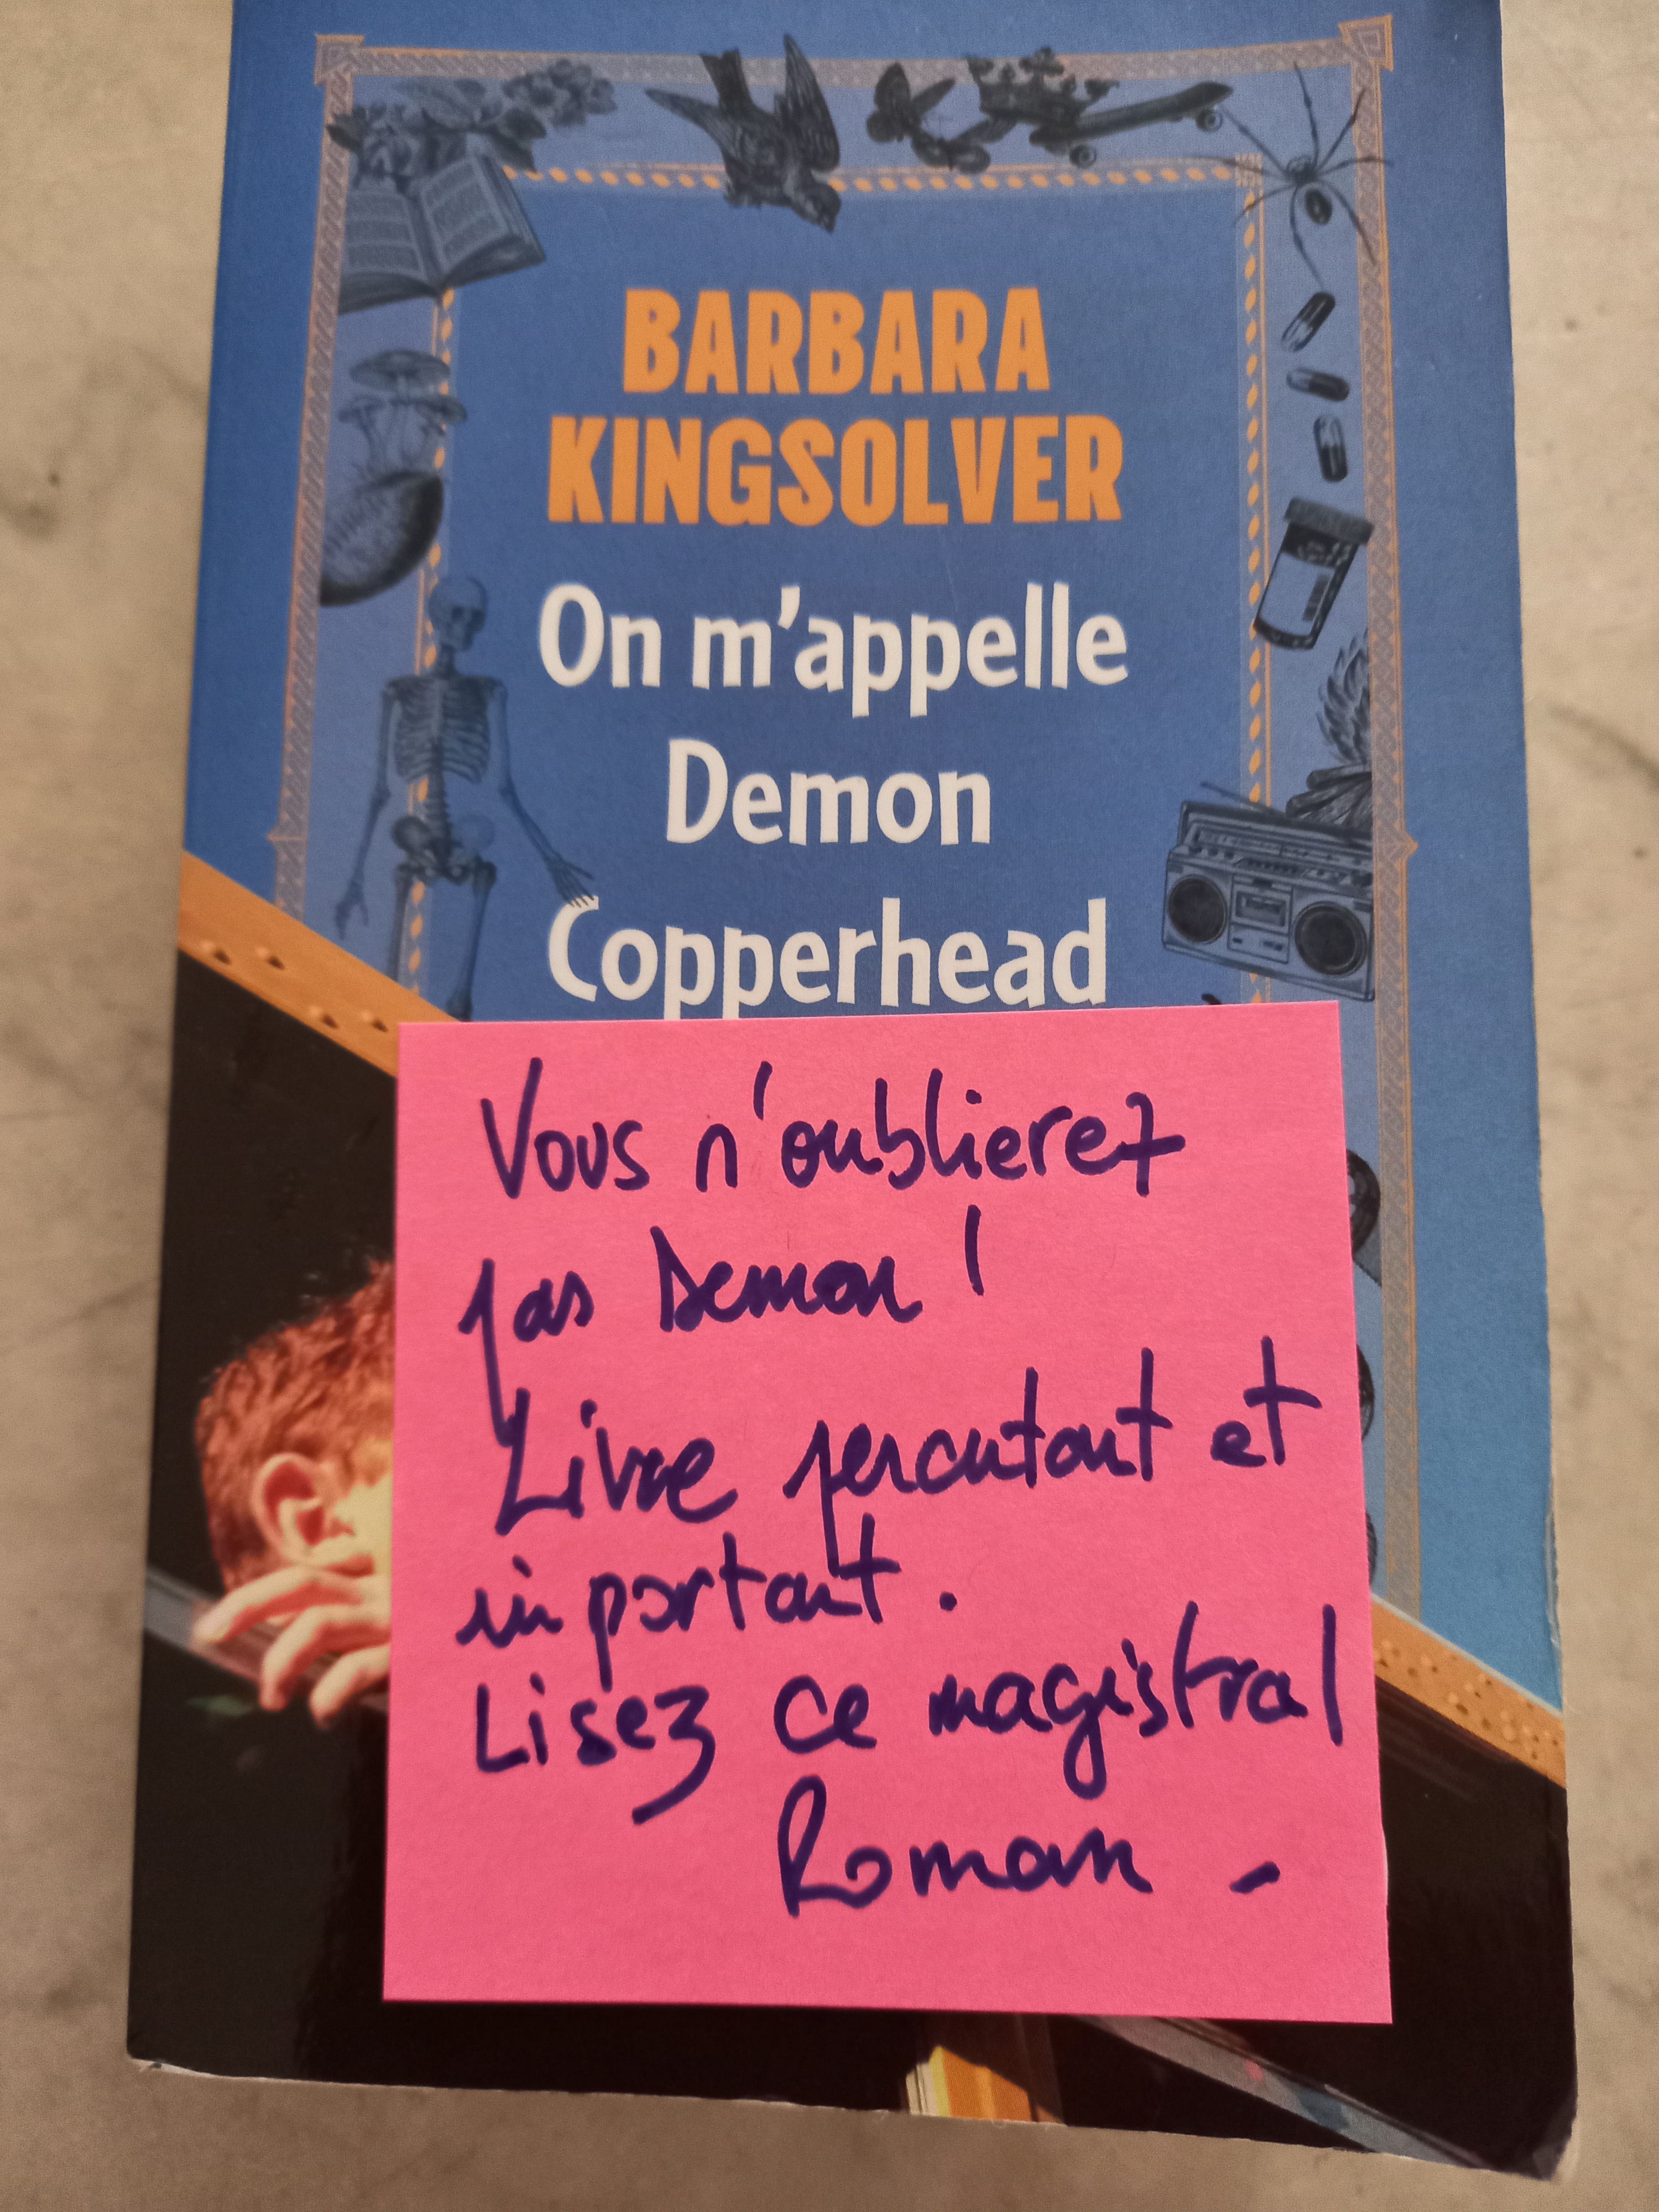 BARBARA
KINGSOLVER
On m'appelle
Demon
Copperhead
Vous n'oublierez
pas Demon !
Livre percutant et
important.
Lisez ce magistral
Roman -